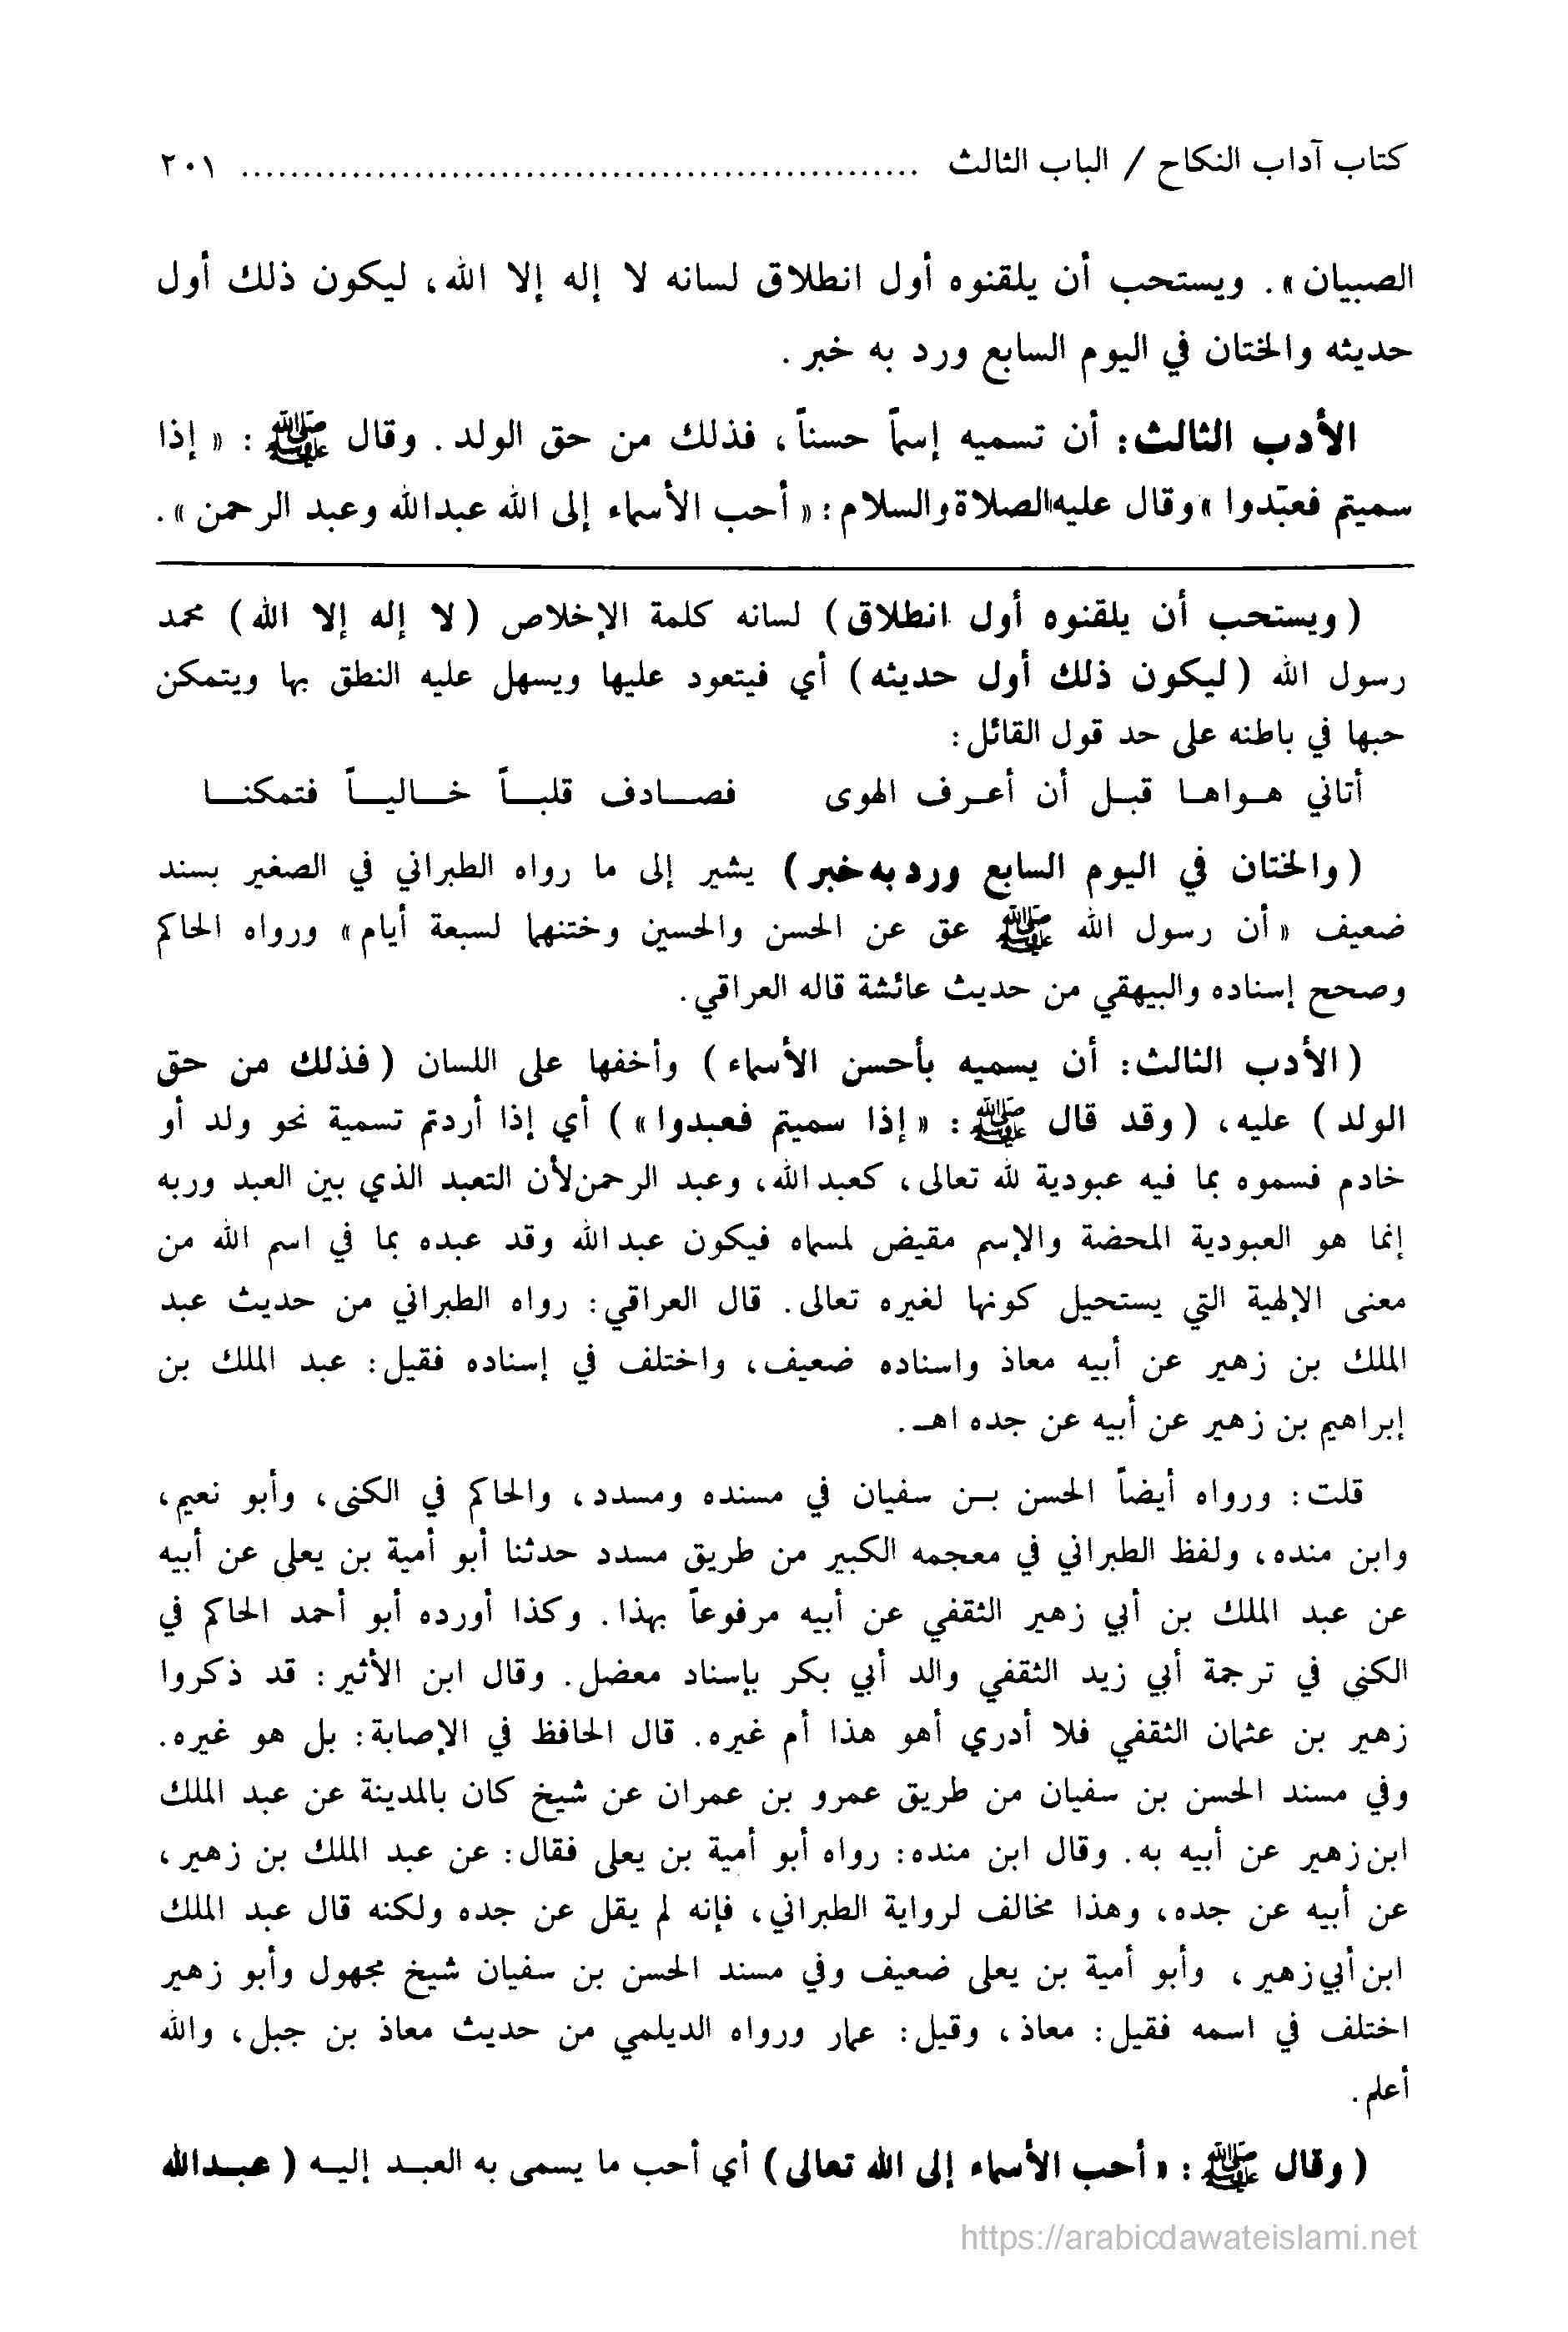 كتاب آداب النكاح / الباب الثالث ...................................................... ٢٠١
الصبيان». ويستحب أن يلقنوه أول انطلاق لسانه لا إله إلا الله، ليكون ذلك أول
حديثه والختان في اليوم السابع ورد به خبر.
الأدب الثالث: أن تسميه إسماً حسناً، فذلك من حق الولد. وقال ﷺ: «إذا
سميتم فعبّدوا» وقال عليه الصلاة والسلام: «أحب الأسماء إلى الله عبدالله وعبد الرحمن».
(ويستحب أن يلقنوه أول انطلاق) لسانه كلمة الإخلاص (لا إله إلا الله) محمد
رسول الله (ليكون ذلك أول حديثه) أي فيتعود عليها ويسهل عليه النطق بها ويتمكن
حبها في باطنه على حد قول القائل:
أتاني هـواهـا قبـل أن أعـرف الهوى فصـــادف قلبـــاً خـــاليـــاً فتمكنـــا
(والختان في اليوم السابع ورد به خبر) يشير إلى ما رواه الطبراني في الصغير بسند
ضعيف «أن رسول الله ﷺ عق عن الحسن والحسين وختنهما لسبعة أيام» ورواه الحاكم
وصحح إسناده والبيهقي من حديث عائشة قاله العراقي.
(الأدب الثالث: أن يسميه بأحسن الأسماء) وأخفها على اللسان (فذلك من حق
الولد) عليه، (وقد قال ﷺ: «إذا سميتم فعبدوا») أي إذا أردتم تسمية نحو ولد أو
خادم فسموه بما فيه عبودية لله تعالى، كعبدالله، وعبد الرحمن لأن التعبد الذي بين العبد وربه
إنما هو العبودية المحضة والإسم مقيض لمسماه فيكون عبدالله وقد عبده بما في اسم الله من
معنى الإلهية التي يستحيل كونها لغيره تعالى. قال العراقي: رواه الطبراني من حديث عبد
الملك بن زهير عن أبيه معاذ واسناده ضعيف، واختلف في إسناده فقيل: عبد الملك بن
إبراهيم بن زهير عن أبيه عن جده اهـ.
قلت: ورواه أيضاً الحسن بـن سفيان في مسنده ومسدد، والحاكم في الكنى، وأبو نعيم،
وابن منده، ولفظ الطبراني في معجمه الكبير من طريق مسدد حدثنا أبو أمية بن يعلى عن أبيه
عن عبد الملك بن أبي زهير الثقفي عن أبيه مرفوعاً بهذا. وكذا أورده أبو أحمد الحاكم في
الكنى في ترجمة أبي زيد الثقفي والد أبي بكر بإسناد معضل. وقال ابن الأثير: قد ذكروا
زهير بن عثمان الثقفي فلا أدري أهو هذا أم غيره. قال الحافظ في الإصابة: بل هو غيره.
وفي مسند الحسن بن سفيان من طريق عمرو بن عمران عن شيخ كان بالمدينة عن عبد الملك
ابن زهير عن أبيه به. وقال ابن منده: رواه أبو أمية بن يعلى فقال: عن عبد الملك بن زهير،
عن أبيه عن جده، وهذا مخالف لرواية الطبراني، فإنه لم يقل عن جده ولكنه قال عبد الملك
ابن أبي زهير، وأبو أمية بن يعلى ضعيف وفي مسند الحسن بن سفيان شيخ مجهول وأبو زهير
اختلف في اسمه فقيل: معاذ، وقيل: عمار ورواه الديلمي من حديث معاذ بن جبل، والله
أعلم.
(وقال ﷺ: «أحب الأسماء إلى الله تعالى) أي أحب ما يسمى به العبـد إليـه (عبـدالله
https://arabicdawateislami.net